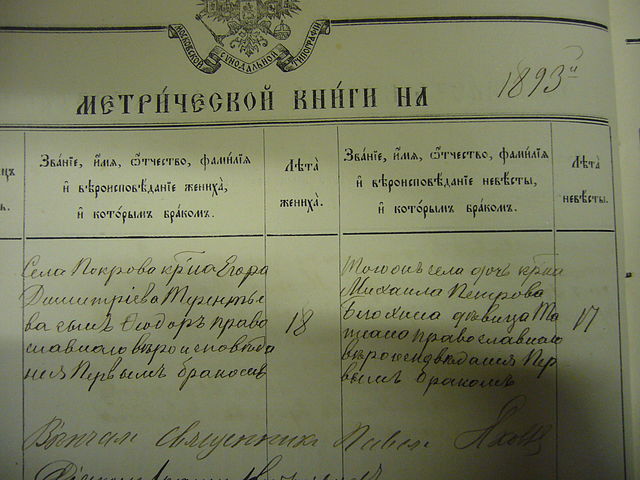 МОСКОВСКОЙ СѴНОДАЛЬНОЙ ТИПОГРАФІИ
МЕТРИ́ЧЕСКОЙ КНИ́ГИ НА 1893й
Зва́нїе, и́мѧ, ѻ́тчество, фами́лїѧ
и҆ вѣроисповѣ́данїе жениха̀,
и҆ кото́рымъ бра́комъ.
Лѣта̀
жениха̀.
Зва́нїе, и́мѧ, ѻ́тчество, фами́лїѧ
и҆ вѣроисповѣ́данїе невѣ́сты,
и҆ кото́рымъ бра́комъ.
Лѣта̀
невѣ́сты.
Села Покрова кр-на Егора
Димитріева Терентье
ва сынъ Ѳеодоръ право
славнаго вѣроисповѣда
нія Первымъ бракомъ
18
Тогоже села дочь кр-на
Михаила Петрова
Блохина дѣвица Та
тіана православнаго
вѣроисповѣданія Пер
вымъ бракомъ
17
Вѣнчалъ Священникъ Павелъ